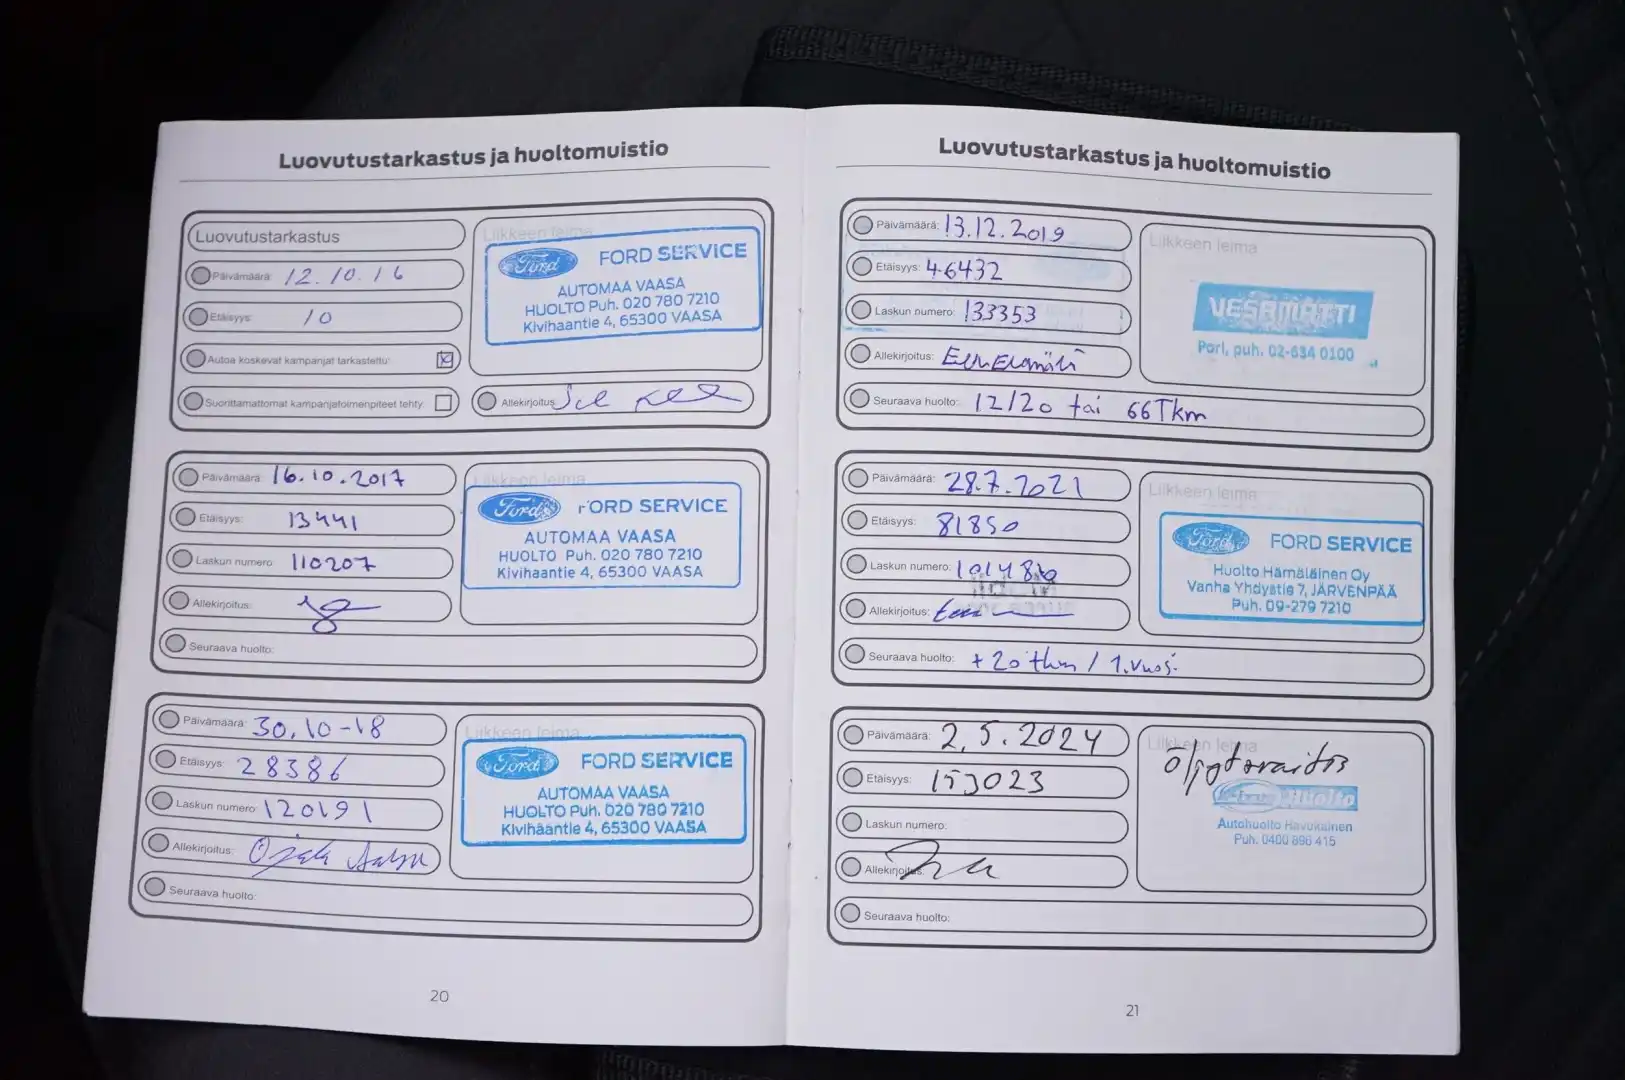 Luovutustarkastus ja huoltomuistio
Luovutustarkastus
Päivämäärä: 12.10.16
Etäisyys: 10
Autoa koskevat kampanjat tarkastettu:
Suorittamattomat kampanjatoimenpiteet tehty:
Liikkeen leima
Ford
FORD SERVICE
AUTOMAA VAASA
HUOLTO Puh. 020 780 7210
Kivihaantie 4, 65300 VAASA
Allekirjoitus:
Päivämäärä: 16.10.2017
Etäisyys: 13441
Laskun numero: 110207
Allekirjoitus:
Seuraava huolto:
Liikkeen leima
Ford
FORD SERVICE
AUTOMAA VAASA
HUOLTO Puh. 020 780 7210
Kivihaantie 4, 65300 VAASA
Päivämäärä: 30.10-18
Etäisyys: 28386
Laskun numero: 120191
Allekirjoitus:
Seuraava huolto:
Liikkeen leima
Ford
FORD SERVICE
AUTOMAA VAASA
HUOLTO Puh. 020 780 7210
Kivihaantie 4, 65300 VAASA
20
Luovutustarkastus ja huoltomuistio
Päivämäärä: 13.12.2019
Etäisyys: 46432
Laskun numero: 133353
Allekirjoitus:
Seuraava huolto: 12/20 tai 66Tkm
Liikkeen leima
VESAMATTI
Pori, puh. 02-634 0100
Päivämäärä: 28.7.2021
Etäisyys: 81850
Laskun numero:
Allekirjoitus:
Seuraava huolto: +20 tkm / 1.vuosi
Liikkeen leima
Ford
FORD SERVICE
Huolto Hämäläinen Oy
Vanha Yhdystie 7, JÄRVENPÄÄ
Puh. 09-279 7210
Päivämäärä: 2.5.2024
Etäisyys: 153023
Laskun numero:
Allekirjoitus:
Seuraava huolto:
Liikkeen leima
Huolto
Autohuolto Havukainen
Puh. 0400 896 415
21